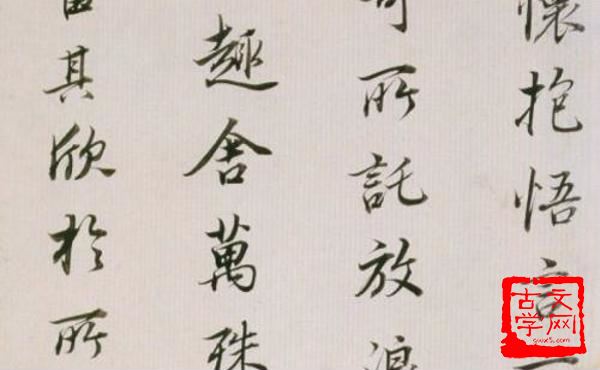 懷抱悟言一
所託放浪
趣舍萬殊
其欣於所
古文
学网
gwx5.com